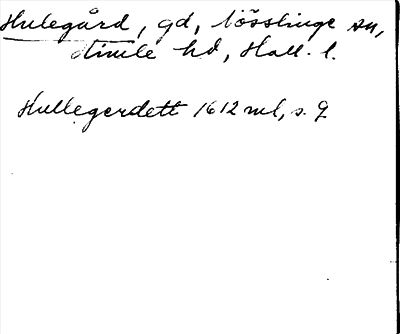 Hulegård, gd, Lösslinge sn,
Himle hd, Hall. l.
Hullegerdett 1612 ml, s. 9